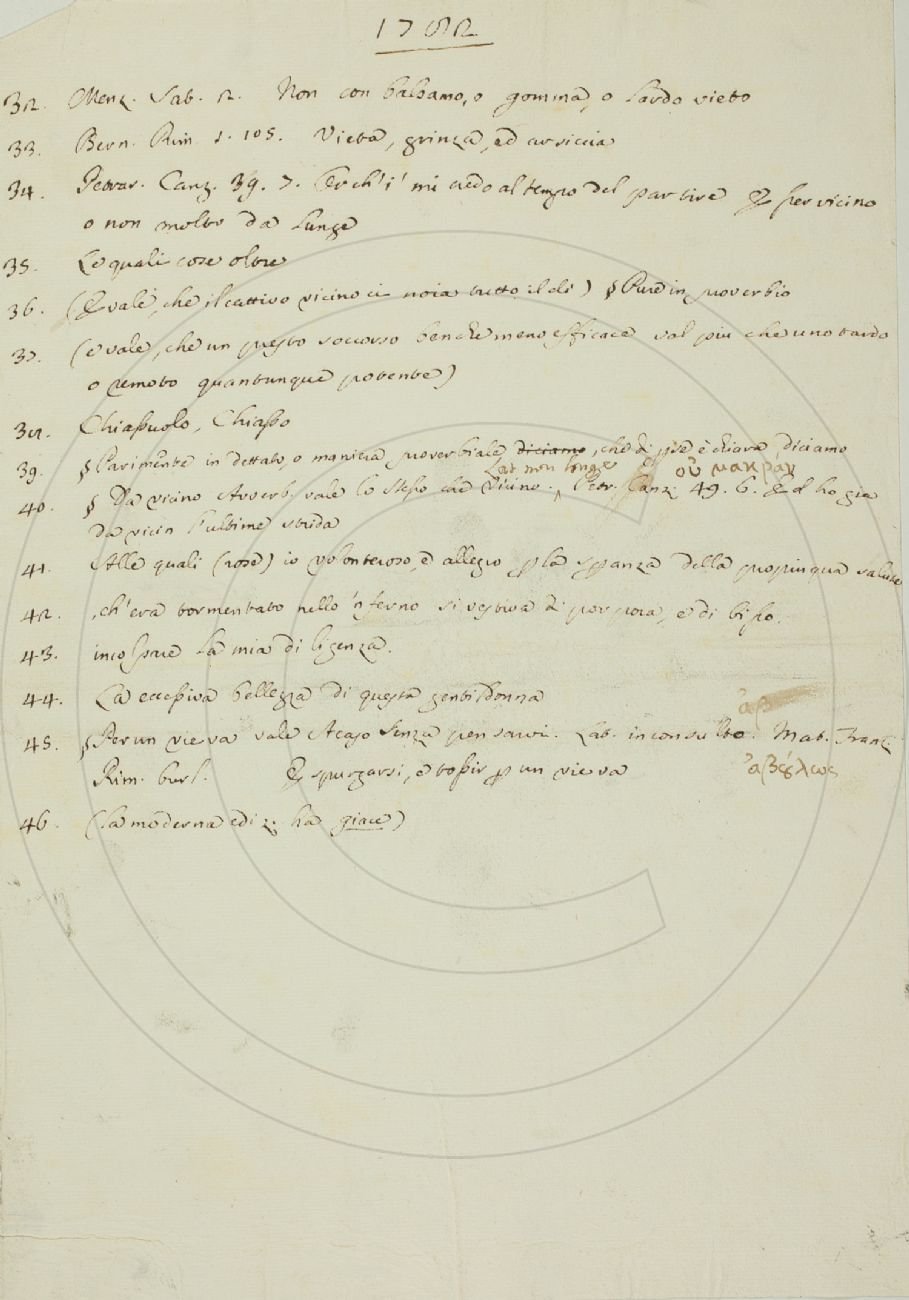 1782
32. Menz. Sat. 2. Non con balsamo, o gomma, o lardo vieto
33. Bern. Rim. 1. 105. Vieta, grinza, ed arsiccia
34. Petrar. Canz. 39. 7. Perch' i' mi credo al tempo del partire & per vicino
o non molto da lunge
35. Le quali cose oltre
36. (& vale, che il cattivo vicino ci noia tutto il dì) § Pure in proverbio
37. (e vale, che un presto soccorso benchè meno efficace val più che uno tardo
o remoto quantunque potente)
38. Chiassuolo, Chiasso
39. § Parimente in dettato, o maniera proverbiale diciamo, che di è chiara, diciamo
Lat. non longe οὐ μακράν
40. § Da vicino Avverb. vale lo stesso che Vicino. Petr. Canz. 49. 6. & d ho gia
da vicin l'ultime strida
41. Alle quali (rose) io volonteroso, e allegro p la spanza della propinqua salute
42. , ch'era tormentato nello 'nferno si vestiva di porpora, e di bisso.
43. incolpare la mia diligenza.
44. La eccessiva bellezza di questa gentildonna
45. § Per un vie va vale A caso senza pensarvi. Lat. inconsulto. Mat. Franz.
Rim. burl. E spurgarsi, e tossir p un vie va ἀβούλως
46. (la moderna ediz. ha giace)